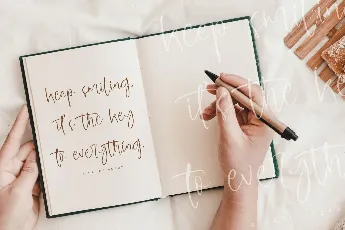 keep smiling.
it's the key
to everything.
keep smiling
it's the key
to everything